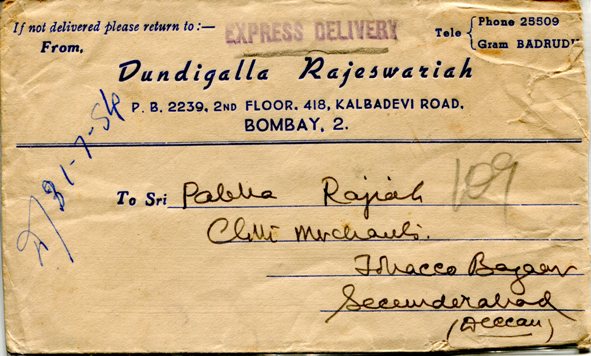 If not delivered please return to :—
From,
EXPRESS DELIVERY
Tele { Phone 25509
Gram BADRUDI
Dundigalla Rajeswariah
P. B. 2239, 2ND FLOOR, 418, KALBADEVI ROAD,
BOMBAY, 2.
31-7-54
109
To Sri Pabba Rajiah
Chilli Merchants.
Tobacco Bazaar
Secunderabad
(Deccan)